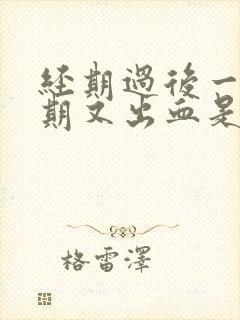 經期過後一
期又出血是
格雷澤